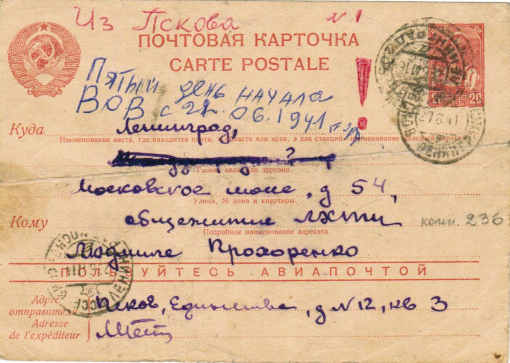 Из Пскова № 1
ПОЧТОВАЯ КАРТОЧКА
CARTE POSTALE
Пятый день начала
ВОВ с 22.06.1941 года
20
Куда Ленинград,
Наименование места, где находится почта, область или края, а для станций наименование железной дороги
Район, село или деревня
Московское шоссе, д 54,
Улица, № дома и квартиры
Кому общежитие ЛХТИ комн. 236
Подробное наименование адресата
Людмиле Прохоренко
ПОЛЬЗУЙТЕСЬ АВИАПОЧТОЙ
Адрес отправителя Псков, Единства, д N12, кв 3
Adresse de l'expéditeur